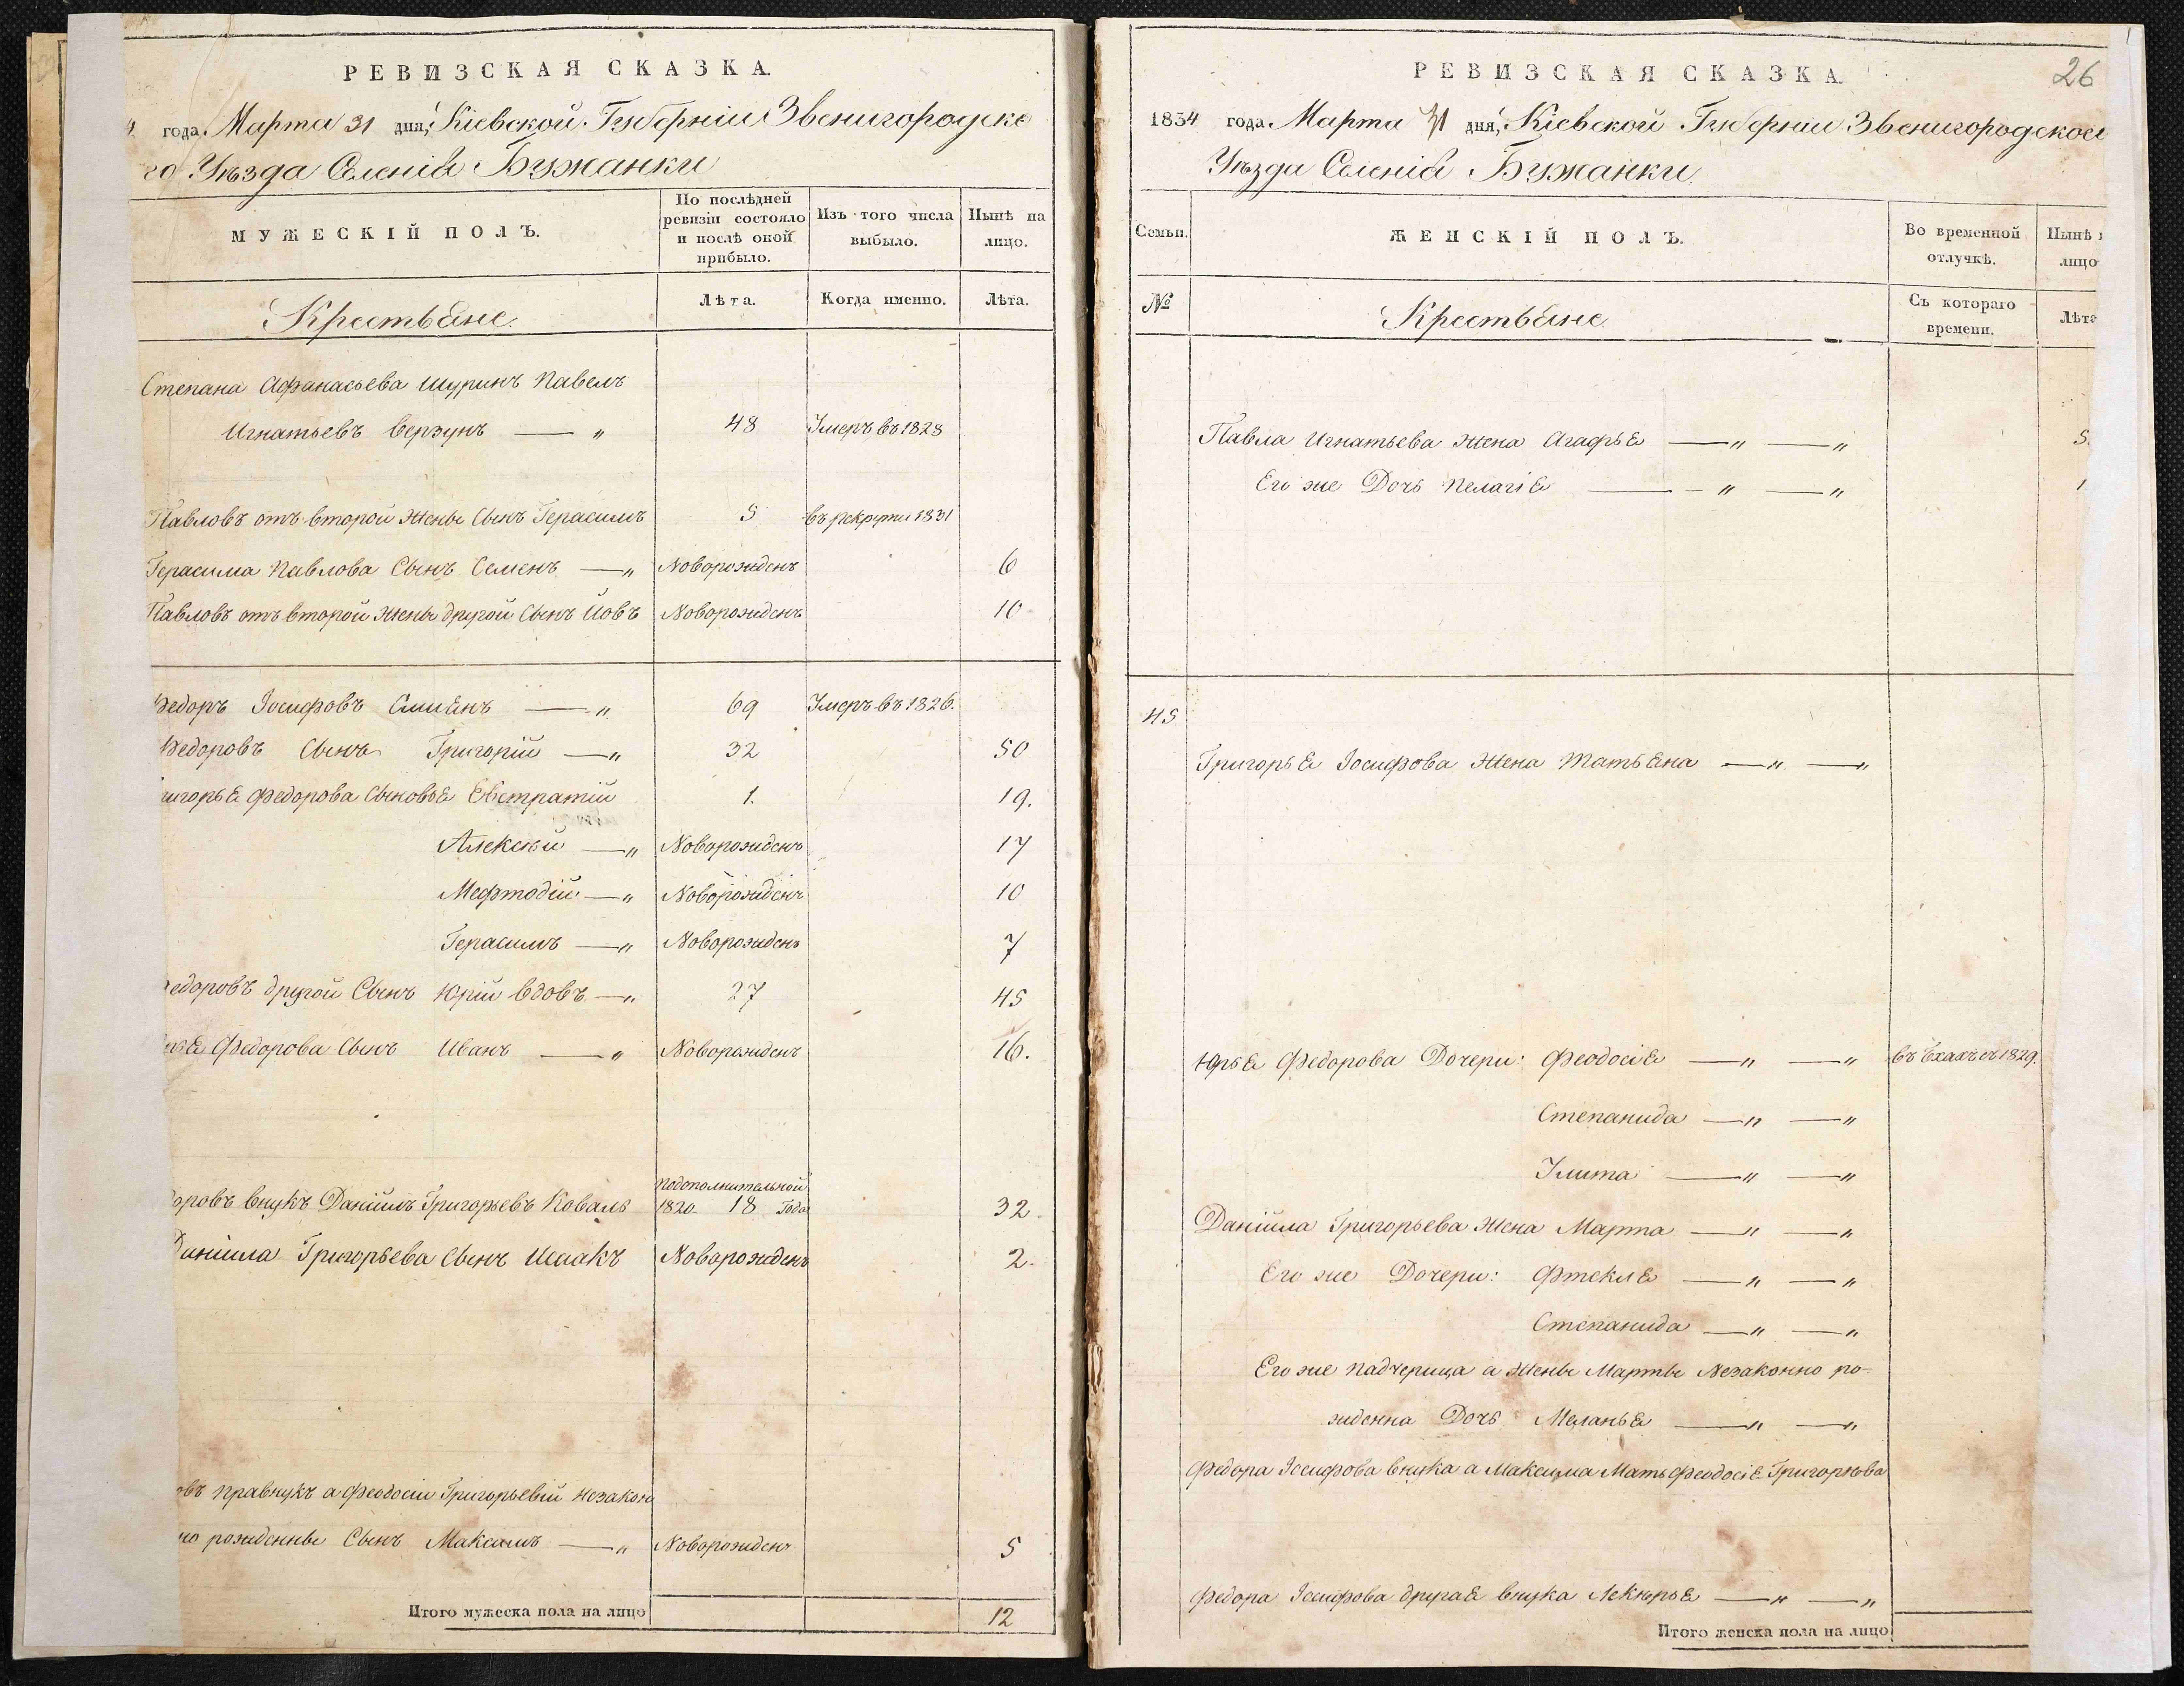 РЕВИЗСКАЯ СКАЗКА.
4 года Марта 31 дня, Кіевской Губерніи Звенигородско
го Уѣзда Селенія Бужанки
МУЖЕСКІЙ ПОЛЪ.
По послѣдней ревизіи состояло и послѣ оной прибыло.
Изъ того числа выбыло.
Нынѣ на лицо.
Крестьяне.
Лѣта.
Когда именно.
Лѣта.
Степана Афанасьева Шуринъ Павелъ
Игнатьевъ Верзунъ — „ 48 Умеръ въ 1828
Павловъ отъ второй жены Сынъ Герасимъ 5 въ рекруты 1831
Герасима Павлова Сынъ Семенъ — „ Новорожденъ 6
Павловъ отъ второй жены другой Сынъ Иовъ Новорожденъ 10
Федоръ Іосифовъ — „ 69 Умеръ въ 1826.
Федоровъ Сынъ Григорій — „ 32 50
игорья Федорова Сыновья Евстратій 1. 19.
Алексѣй — „ Новорожденъ 17
Мефтодій — „ Новорожденъ 10
Герасимъ — „ Новорожденъ 7
едоровъ другой Сынъ Юрій вдовъ — „ 27 45
рья Федорова Сынъ Иванъ — „ Новорожденъ 16.
подополнительной
оровъ внукъ Даніилъ Григорьевъ Коваль 1820. 18 Года 32.
Даніила Григорьева Сынъ Исаакъ Новорожденъ 2.
овъ правнукъ а Феодосіи Григорьевій незакон
но рожденны Сынъ Максимъ — „ Новорожденъ 5
Итого мужеска пола на лицо 12
26
РЕВИЗСКАЯ СКАЗКА.
1834 года Марта 31 дня, Кіевской Губерніи Звенигородской
Уѣзда Селенія Бужанки
Семьи.
ЖЕНСКІЙ ПОЛЪ.
Во временной отлучкѣ.
Нынѣ
лицо
№
Крестьяне.
Съ котораго времени.
Лѣта
Павла Игнатьева жена Агафья — „ — „ 5
Его же Дочь Пелагія — „ — „ 1
45
Григорья Іосифова жена Татьяна — „ — „
Юрья Федорова Дочери: Феодосія — „ — „ 1829.
Степанида — „ — „
Улита — „ — „
Даніила Григорьева жена Марта — „ — „
Его же Дочери: Фтекля — „ — „
Степанида — „ — „
Его же падчерица а жены Марты незаконно ро-
жденна Дочь Меланья — „ — „
Федора Іосифова внука а Максима Мать Феодосія Григорьева
Федора Іосифова другая внука — „ — „
Итого женска пола на лицо